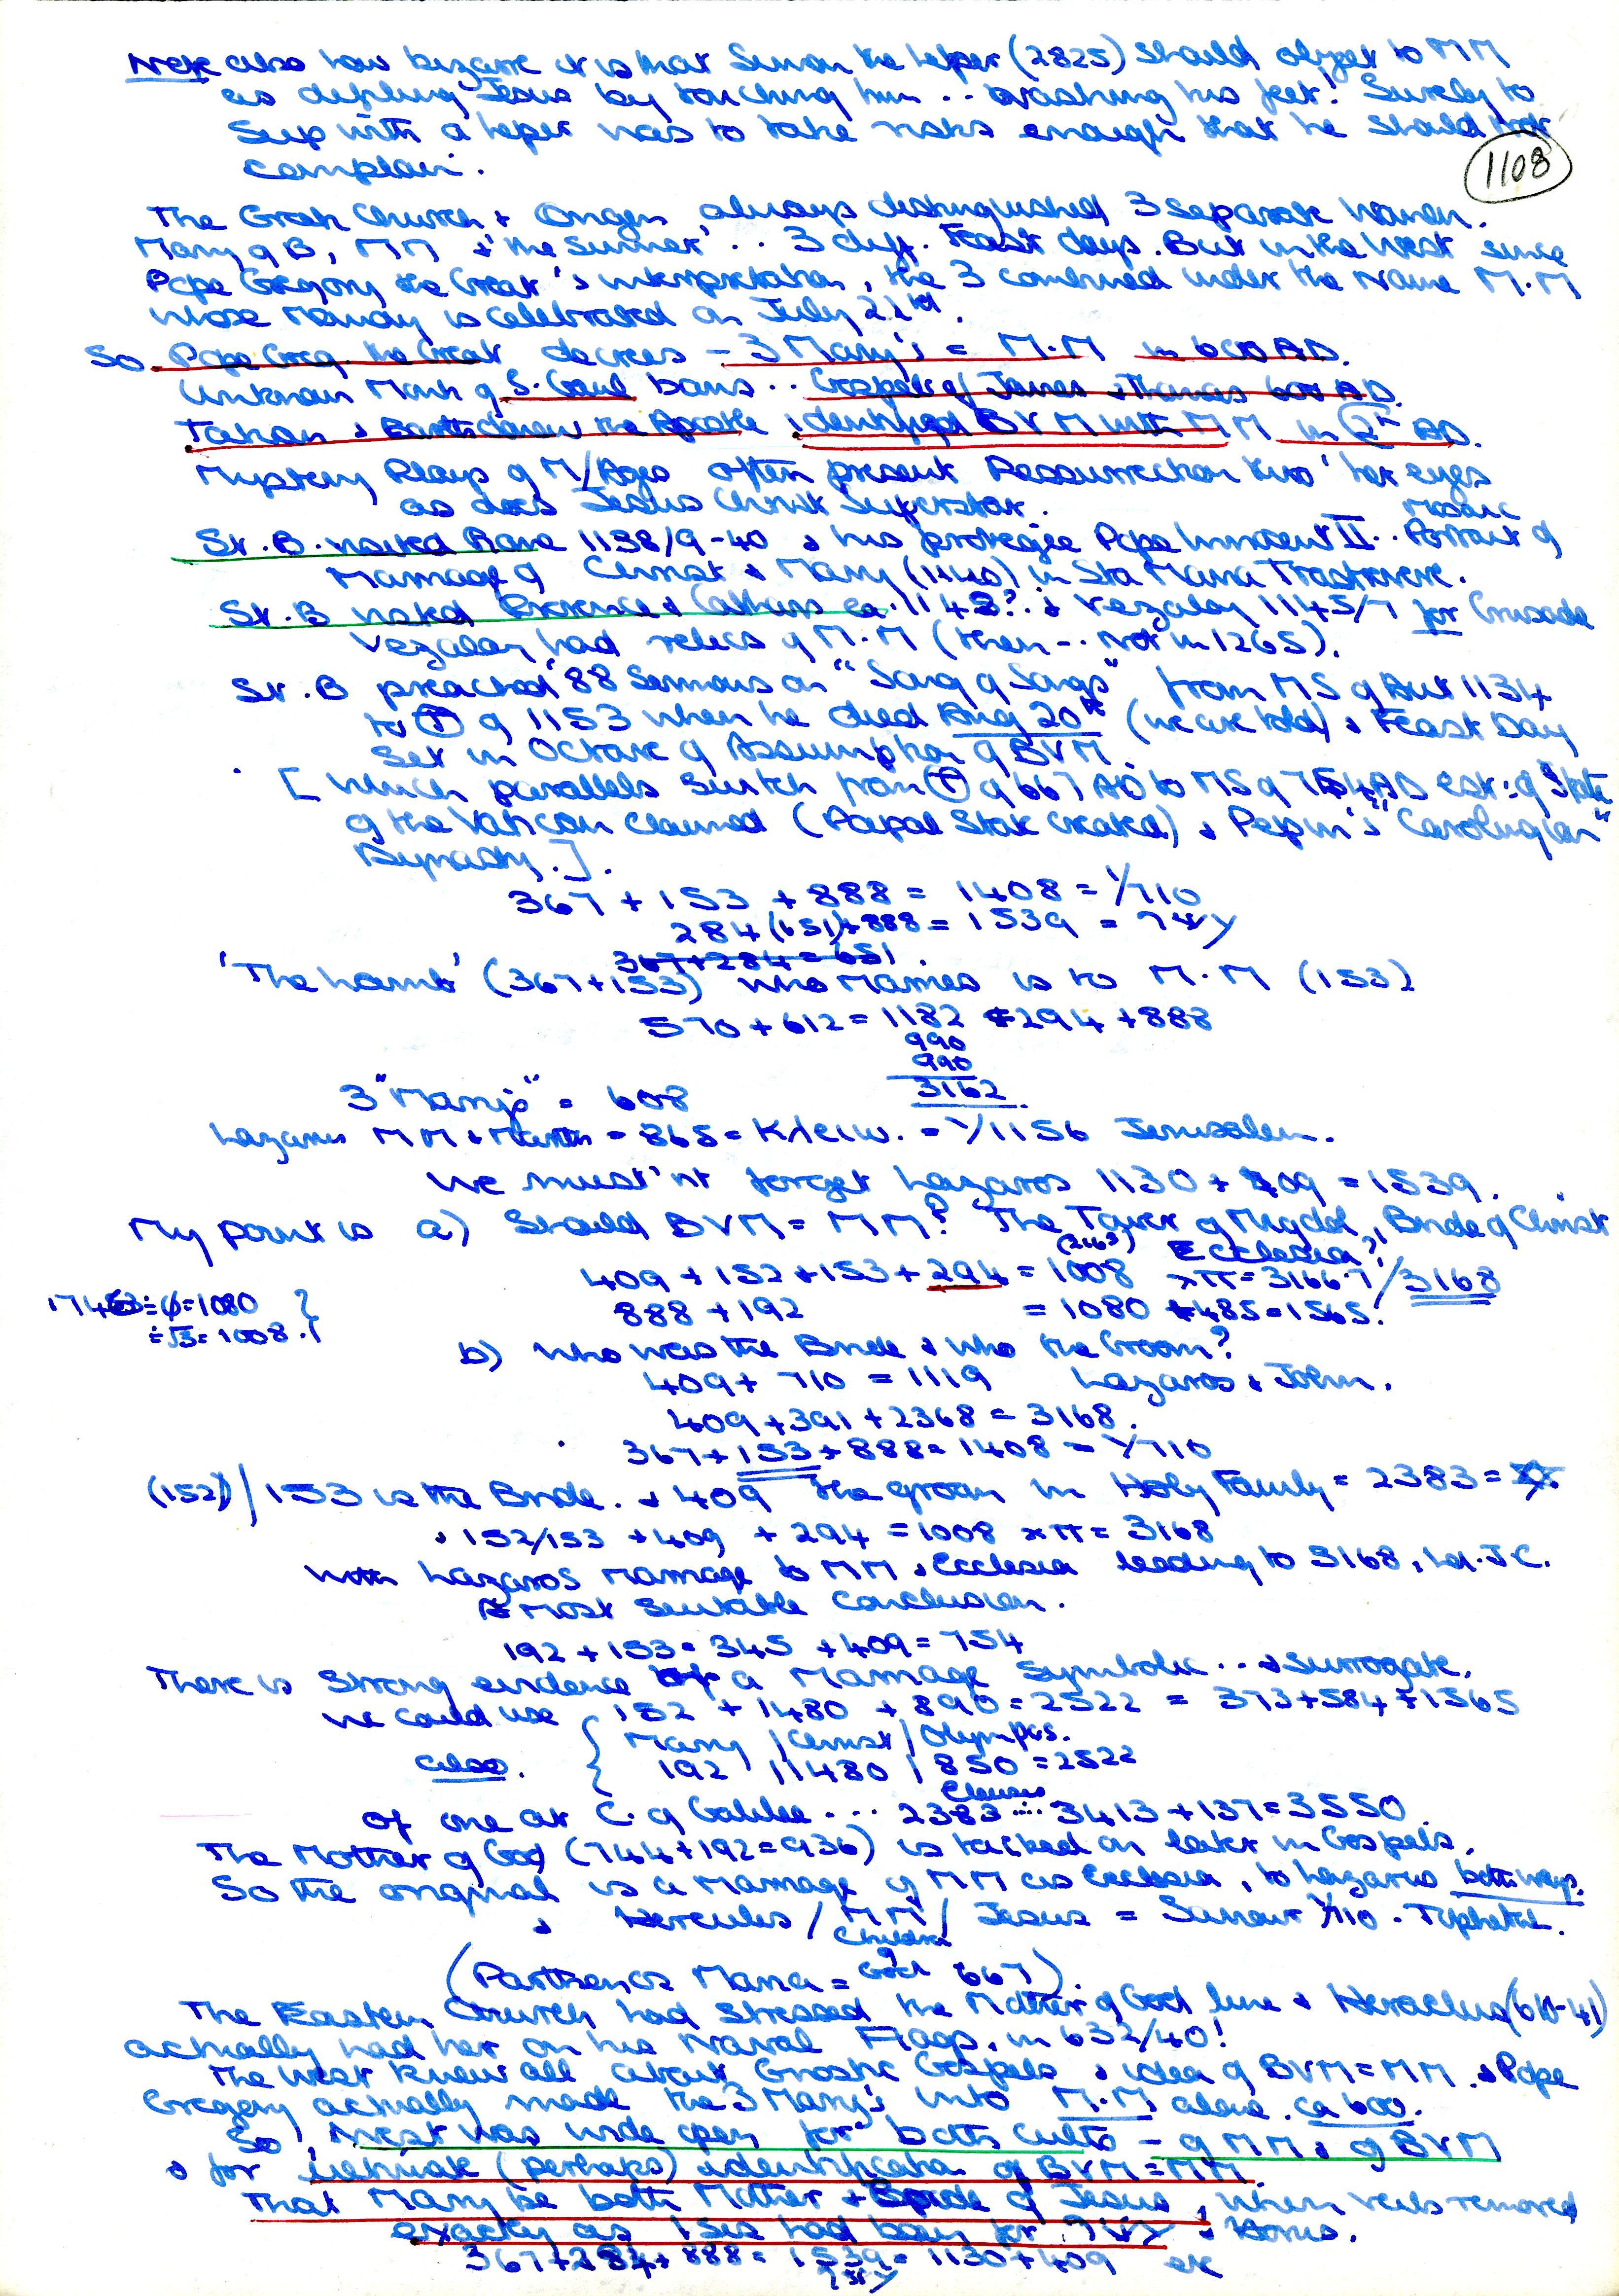 Note also how bizarre it is that Simon the leper (2825) should object to MM
as defiling Jesus by touching him .. washing his feet! Surely to
Sup with a leper was to take risks enough that he should not
complain.
1108
The Greek Church + Origen always distinguished 3 separate women.
Mary of B, MM + 'the Sinner' .. 3 diff. Feast days. But in the West since
Pope Gregory the Great's interpretation, the 3 combined under the name M.M
whose Memory is celebrated on July 22nd.
So Pope Greg. the Great decrees - 3 Mary's = M.M in 600 AD.
Unknown Monk of S. Gaul bans .. Gospels of James + Thomas 600 AD.
Tatian + Bartholomew the Apostle identified BVM with MM in 2nd AD.
Mystery Plays of M/Ages often present Ressurrection thro' her eyes
as does Jesus Christ Superstar.
St. B. visited Rome 1138/9-40 + his protegée Pope Innocent II .. Mosaic Portrait of
Marriage of Christ + Mary (1140) in Sta Maria Trastevere.
St. B visited Provence + Cathars ca. 1148? + Vezalay 1145/7 for Crusade
Vezalay had relics of M.M (then -- not in 1265).
St. B preached '88 Sermons on "Song of Songs" from MS of Aut 1134
to of 1153 when he died Aug 20th (we are told) + Feast Day
Set in Octave of Assumption of BVM.
[ Which parallels switch from of 667 AD to MS of 754 AD est: of State
of the Vatican claimed (Papal State created) + Pepin's "Carolingian"
Dynasty.].
367 + 153 + 888 = 1408 = 1/710
284 (651) + 888 = 1539 =
367+284 = 651.
'The Lamb' (367+153) who marries is to M.M (153)
570 + 612 = 1182 +294 +888
990
990
3162
3 "Mary's" = 608
Lazarus MM + Martha = 865 = = 1/1156 Jerusalem.
We must'nt forget Lazaros 1130 + 409 = 1539.
My point is a) Should BVM = MM? The Tower of Migdol, Bride of Christ
Ecclesia?
409 + 152 + 153 + 294 = 1008 xπ = 3166.7 / 3168
888 + 192 = 1080 +485 = 1565!
÷ϕ = 1080
÷√3 = 1008.
b) Who was the Bride + who the Groom?
409 + 710 = 1119 Lazaros + John.
409 + 391 + 2368 = 3168.
367 + 153 + 888 = 1408 = 1/710
(152) / 153 is the Bride. + 409 the groom in Holy Family = 2383 =
+ 152/153 + 409 + 294 = 1008 xπ = 3168
With Lazaros marriage to MM + Ecclesia leading to 3168, Ld. J.C.
A most suitable conclusion.
192 + 153 = 345 + 409 = 754
There is strong evidence of a Marriage Symbolic ... + Surrogate.
We could use 152 + 1480 + 890 = 2522 = 373 + 584 + 1565
Mary / Christ / Olympus.
also. 192 / 1480 / 850 = 2522
of one at C. of Galilee ... 2383 .... 3413 + 137 = 3550.
The Mother of God (744+192=936) is tacked on later in Gospels.
So the original is a marriage of MM as Ecclesia, to Lazarus both ways.
+ Hercules / MM / Jesus = Saviour 1/710 . Tiphereth.
(Parthenos Maria = Children of God 667).
The Eastern Church had stressed the Mother of God line + Heraclius (610-41)
actually had her on his Naval Flags, in 632/40!
The West knew all about Gnostic Gospels + idea of BVM = MM. + Pope
Gregory actually made the 3 Mary's into M.M alone. ca 600.
So, West was wide open for both cults - of MM + of BVM
+ for ultimate (perhaps) identification of BVM = MM.
That Mary be both Mother + Bride of Jesus, when veils removed
exactly as Isis had been for + Horus.
367 + 284 + 888 = 1539 = 1130 + 409 etc